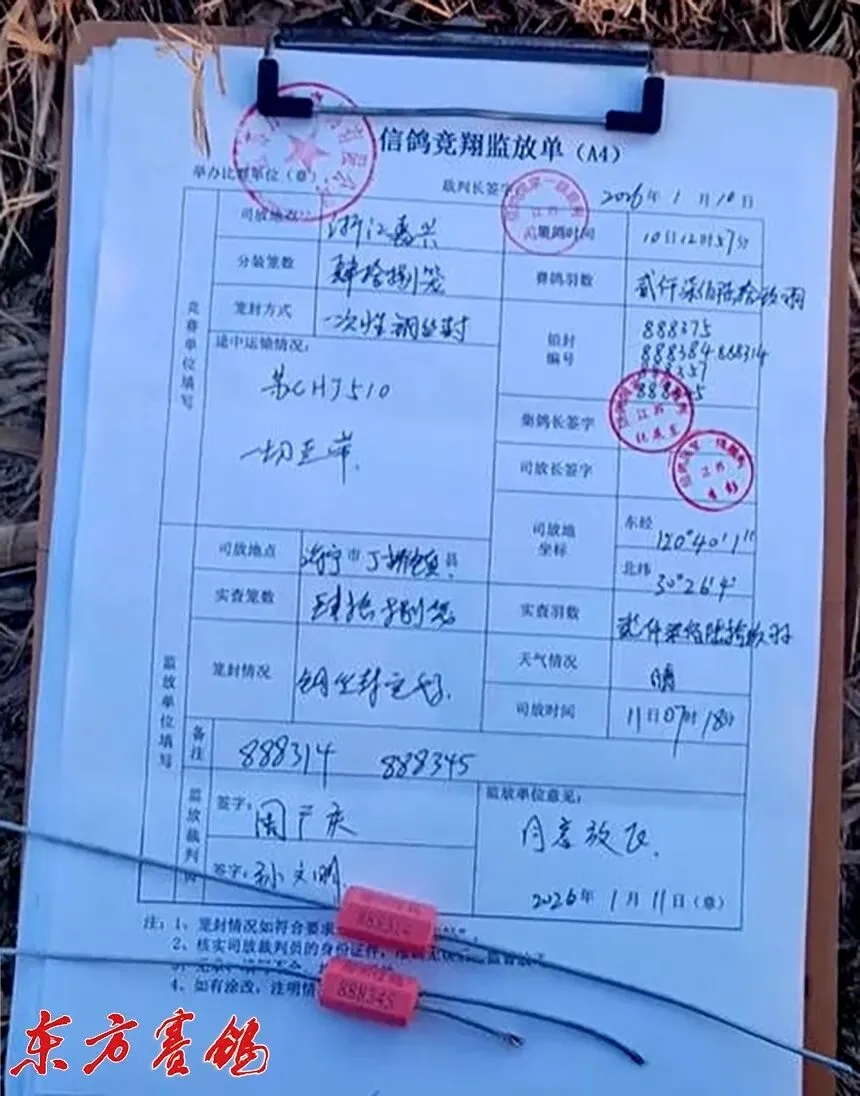 信鸽竞翔监放单（A4）
举办比赛单位（章） 裁判长签字 2026年1月10日
竞赛单位填写
司放地点 浙江嘉兴 集鸽时间 10日12时57分
分装笼数 肆拾捌笼 赛鸽羽数 贰仟柒佰陆拾玖羽
笼封方式 一次性钢丝封 铅封编号 888375
888384 888314
888357
途中运输情况：
苏CHJ510
一切正常.
集鸽长签字
司放长签字
司放地坐标 东经 120°40′1″
北纬 30°26′4″
监放单位填写
司放地点 海宁市丁桥镇县
实查笼数 肆拾捌笼 实查羽数 贰仟柒佰陆拾玖羽
笼封情况 钢丝封完好. 天气情况 晴
司放时间 11日07时18分
备注 888314 888345
监放裁判员 签字：周广庆
签字：孙文明
监放单位意见：
同意放飞.
2026年1月11日（章）
注：1、笼封情况如符合要求
2、核实司放裁判员的身份证件，
4、如有涂改，注明情
888314
888345
东方赛鸽